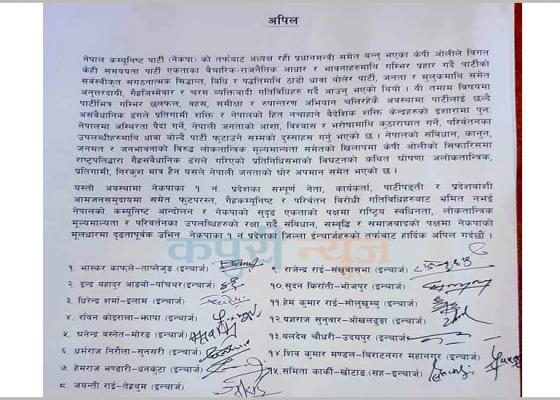 अपिल
नेपाल कम्युनिष्ट पार्टी (नेकपा) को तर्फबाट अध्यक्ष रही प्रधानमन्त्री समेत बन्नु भएका केपी ओलीले विगत
केही समययता पार्टी एकताका वैचारिक-राजनैतिक आधार र भावनाहरुमाथि गम्भिर प्रहार गर्दै पार्टीको
सर्वस्वीकृत संगठनात्मक सिद्धान्त, विधि र पद्धतिमाथि ठाडो धावा बोलेर पार्टी, जनता र मुलुकमाथि समेत
अनुत्तरदायी, गैह्रजिम्मेवार र चरम व्यक्तिवादी गतिविधिहरु गर्दै आउनु भएको थियो । यी तमाम विषयमा
पार्टीभित्र गम्भिर छलफल, वहस, समीक्षा र रुपान्तरण अभियान चलिरहेकै अवस्थामा पार्टीलाई छल्दै
असंवैधानिक ढंगले प्रतिगामी र नेपालको हित नचाहाने वैदेशिक शक्ति केन्द्रहरुको इशारामा पुनः
नेपालमा अस्थिरता पैदा गर्ने, नेपाली जनताको आशा, विश्वास र भरोषामाथि कुठाराघात गर्ने, परिवर्तनका
उपलब्धीहरुमाथि धावा बोल्दै पार्टी फुटाउने सम्मको दुस्साहस गर्नु भएको छ । नेपालको संविधान, कानुन,
जनमत र जनभावनाको विरुद्ध लोकतान्त्रिक मूल्यमान्यता समेतको खिलापमा केपी ओलीको सिफारिसमा
राष्ट्रपतिद्वारा गैह्रसंवैधानिक ढंगले गरिएको प्रतिनिधिसभाको विघटनको कथित घोषणा अलोकतान्त्रिक,
प्रतिगामी, निरकुश मात्र हैन यसले नेपाली जनताको घोर अपमान समेत भएको छ ।
यस्तो अवस्थामा नेकपाका १ नं. प्रदेशका सम्पूर्ण नेता, कार्यकर्ता, पार्टीपङ्ती र प्रदेशवाशी
आमजनसमुदायमा समेत फुटपरस्त, गैह्रकम्युनिष्ट र परिवर्तन विरोधी गतिविधिहरुबाट भ्रमित नभई
नेपालको कम्युनिष्ट आन्दोलन र नेकपाको सुदृढ एकताको पक्षमा राष्ट्रिय स्वधिनता, लोकतान्त्रिक
मूल्यमान्यता र परिवर्तनका उपलब्धिहरुको रक्षा गर्दै संवमान, सम्वृद्धि र समाजवादको पक्षमा नेकपाको
मूलधारमा दृढतापूर्वक उभिन नेकपाका १ नं. प्रदेशका जिल्ला ईन्चार्जहरुको तर्फबाट हार्दिक अपिल गर्दछौं ।
कपुरी न्यूज
१ भास्कर काफ्ले-ताप्लेजुङ (इन्चार्ज)
२ इन्द्र बहादुर आङबो-पाँचथर(इन्चार्ज)
३ धिरेन्द्र शर्मा-इलाम (इन्चार्ज)
४ रबिन कोइराला-झापा (इन्चार्ज)
५ घनेन्द्र बस्नेत-मोरङ (इन्चार्ज)
६ धर्मराज निरौला-सुनसरी (इन्चार्ज)
७ हेमराज भण्डारी-धनकुटा (इन्चार्ज)
८ जयन्ती राई-तेह्रथुम (इन्चार्ज)
९ राजेन्द्र राई-संखुवासभा (इन्चार्ज)
१० सुदन किरांती-भोजपुर (इन्चार्ज)
११ हेम कुमार राई-सोलुखुम्बु (इन्चार्ज)
१२ यज्ञराज सुनुवार-ओखलढुङ्गा (इन्चार्ज)
१३ बलदेव चौधरी-उदयपुर (इन्चार्ज)
१४ शिव कुमार मण्डल-बिराटनगर महानगर (इन्चार्ज)
१५ समिता कार्की-खोटाङ (सह-इन्चार्ज)